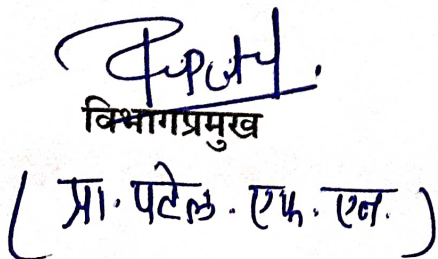 विभागप्रमुख
( प्रा. पटेल. एफ. एन. )